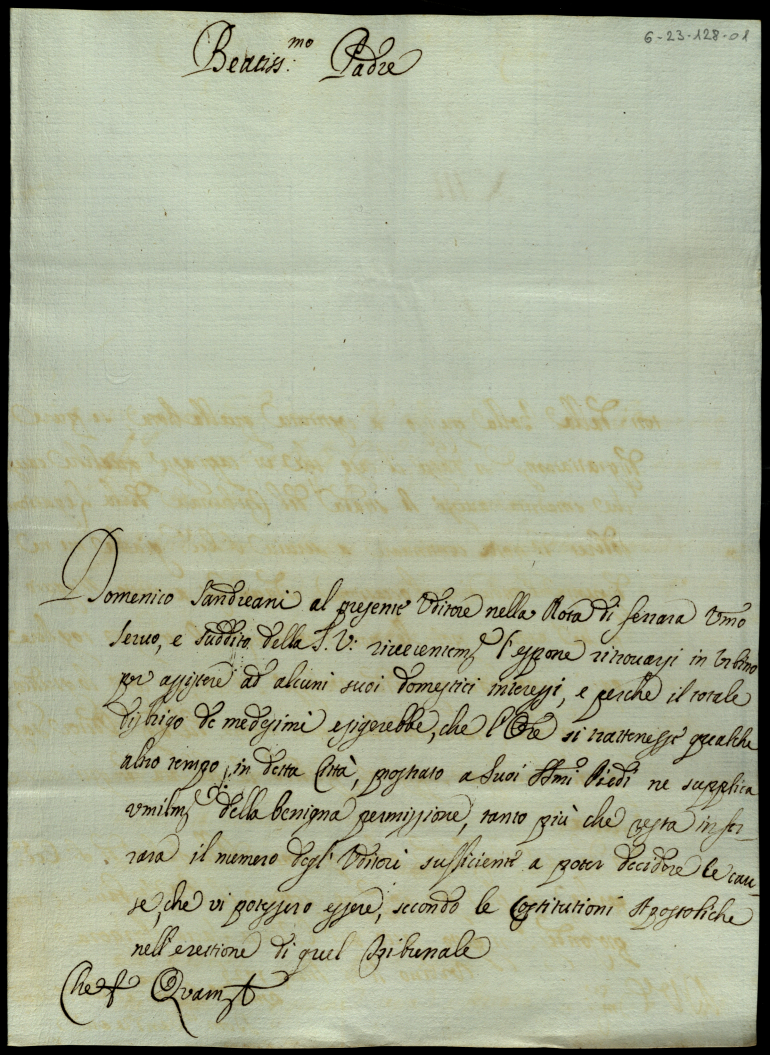 6-23-128-01
Beatiss:mo Padre
Domenico Sandreani al presente Uditore nella Rota di ferrara Vmo
Servo, e Suddito della S. V. riverentemte l'espone ritrovarsi in Urbino
per assistere ad alcuni suoi domestici interessi, e perche il totale
disbrigo de medesimi esigerebbe, che l'Ore si trattenesse qualche
altro tempo, in detta Città, prostrato a Suoi SSmi Piedi ne supplica
vmilmte della benigna permissione, tanto più che resta in fer-
rara il numero degl' Uditori sufficiente a poter decidere le cau-
se, che vi potessero essere, secondo le Costitutioni Apostoliche
nell'erettione di quel Tribunale
Che